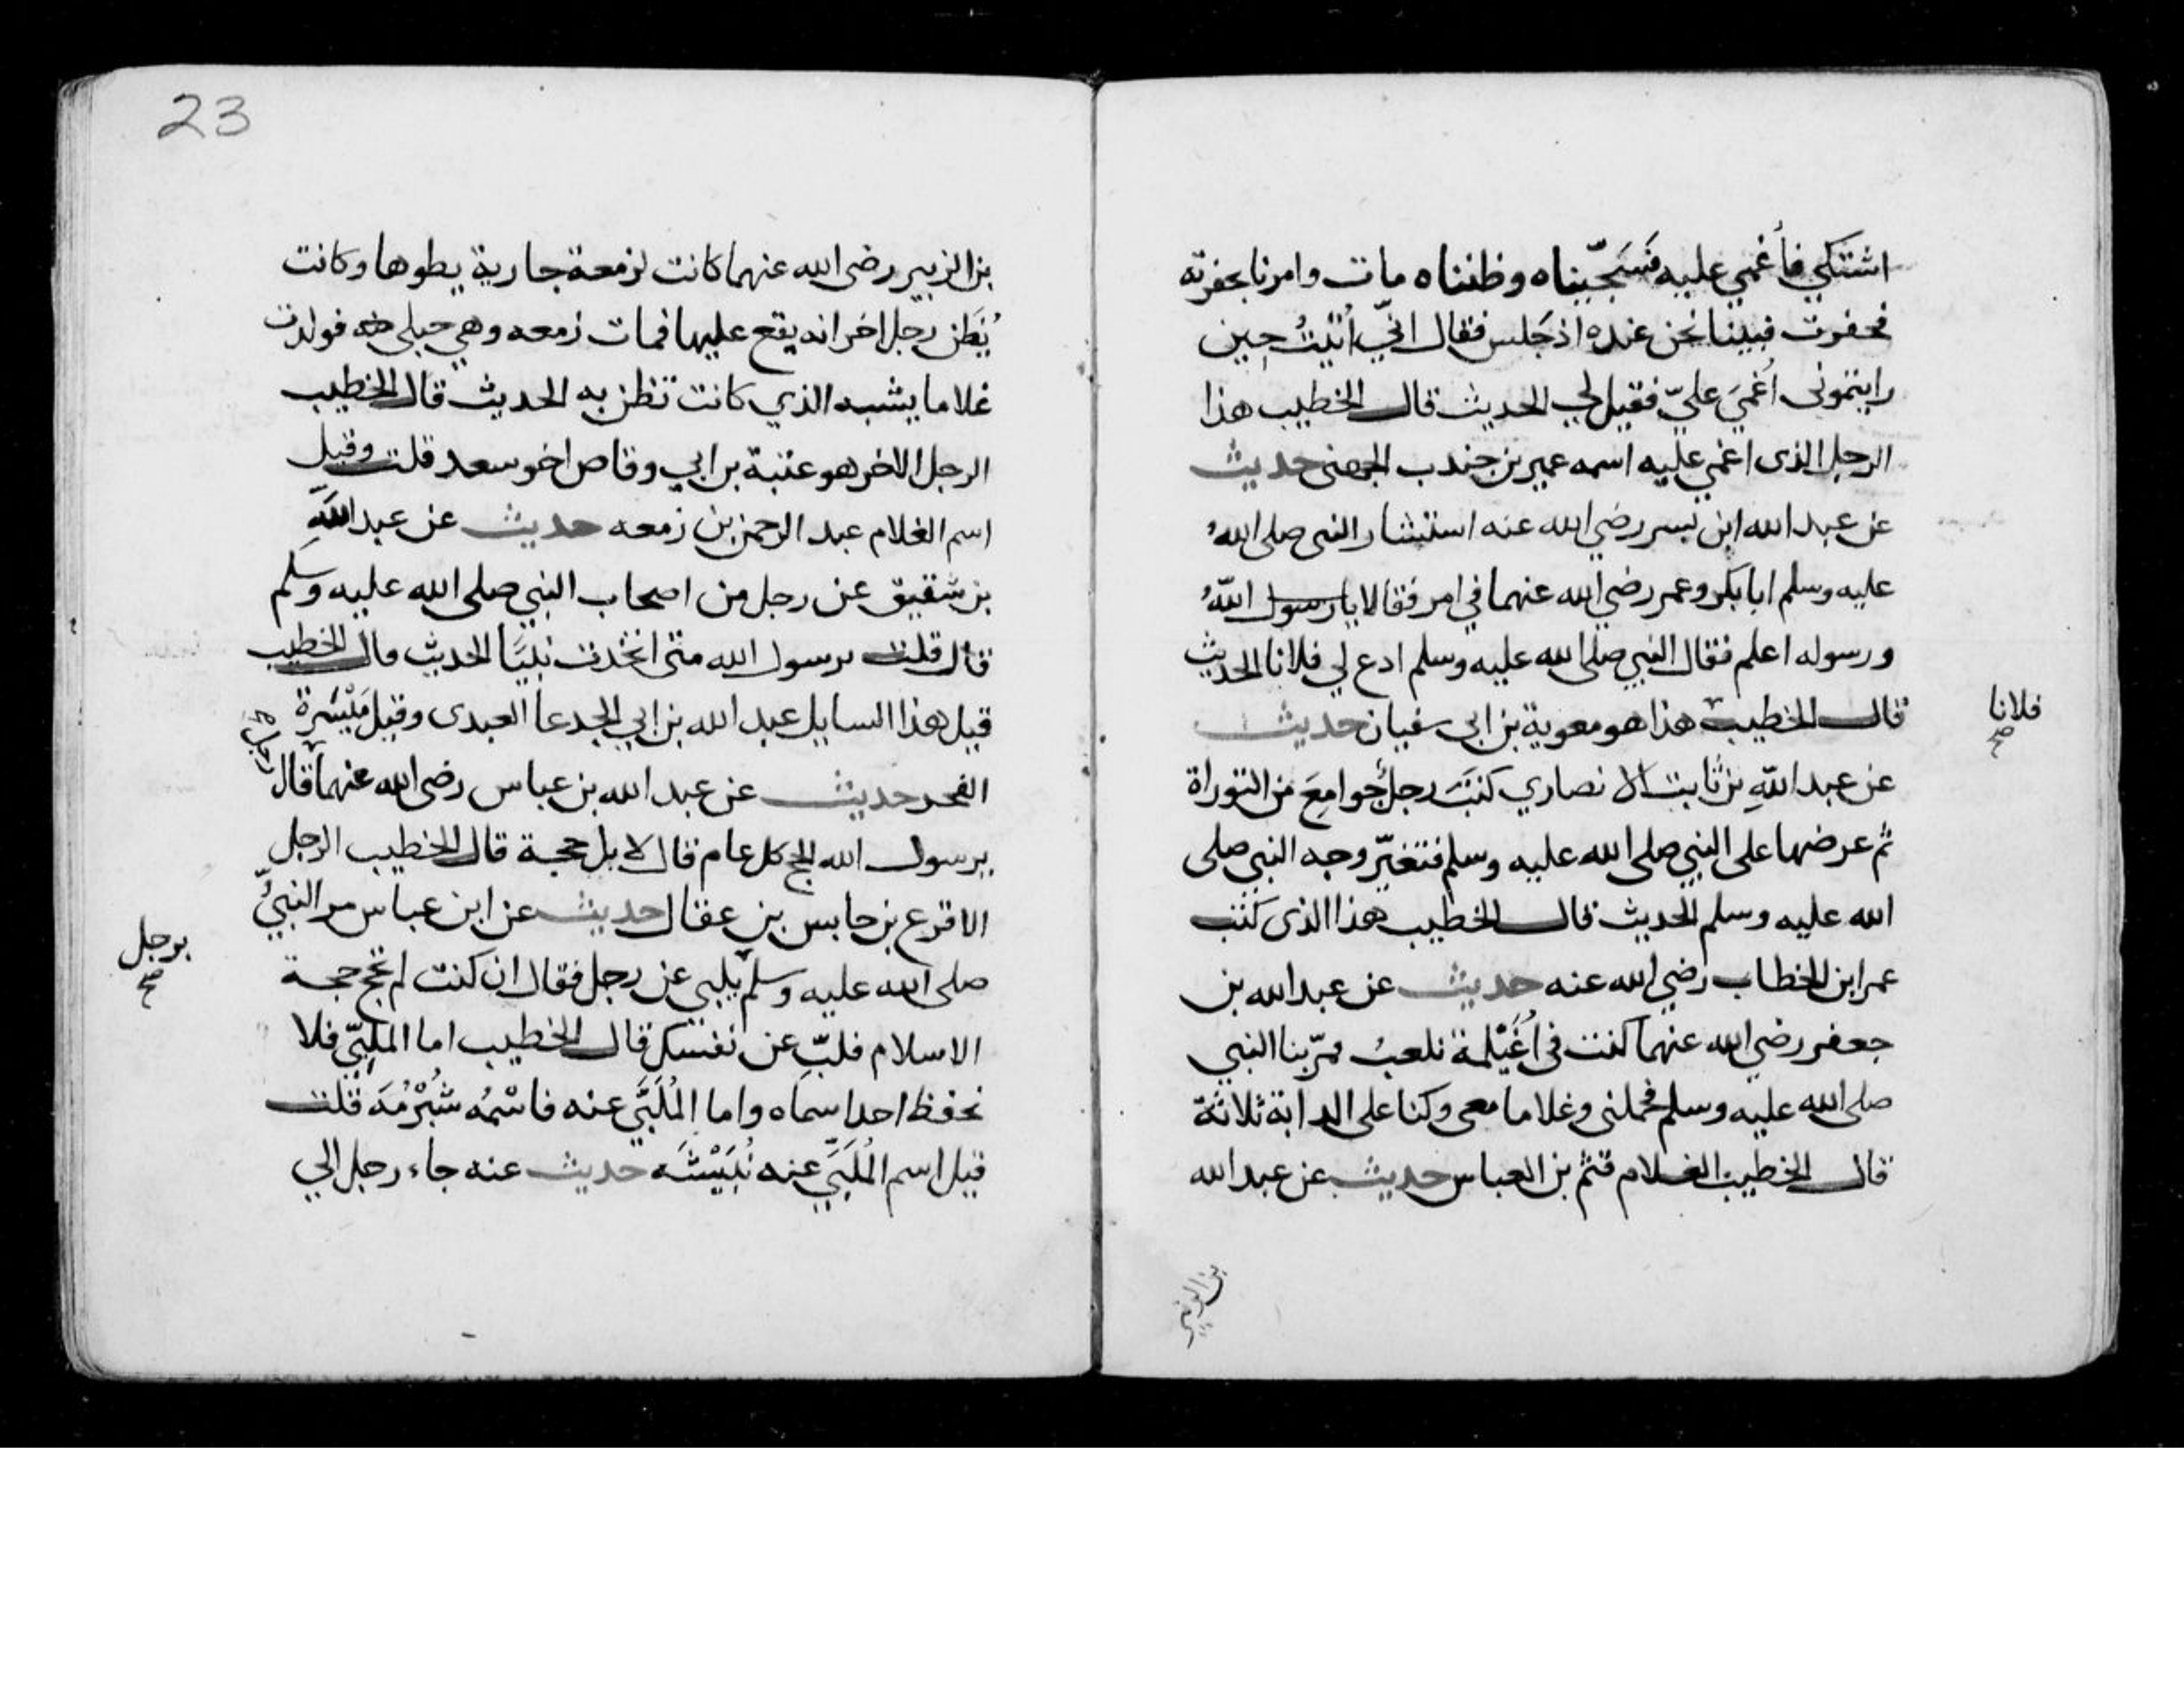 اشتكي فأغمي عليه فَسَجّيناه وظنناه مات وامرنا بحفرته
فحفرت فبينا نحن عنده اذ جَلس فقال انّي اُتيتُ حين
رايتموني اُغميَ عليّ فقيل لي الحديث قال الخطيب هذا
الرجل الذى اغمي عليه اسمه عمير بن جندب الجهني حديث
عن عبد الله ابن بسر رضي الله عنه استشار النبي صلى اللهُ
عليه وسلم ابا بكر وعمر رضي الله عنهما في امر فقالا يا رسول اللهُ
ورسوله اعلم فقال النبي صلى الله عليه وسلم ادع لي فلانا الحديث
قال الخطيب هذا هو معوية بن ابى سفيان حديث
فلانا
صح
عن عبد اللهِ بن ثابت الانصاري كتبَ رجلٌ جوامعَ من التوراة
ثم عرضها على النبي صلى الله عليه وسلم فتغيّر وجه النبي صلى
الله عليه وسلم الحديث قال الخطيب هذا الذى كتب
عمر ابن الخطاب رضي الله عنه حديث عن عبد الله بن
جعفر رضي الله عنهما كنت في اُغَيْلمة نلعبُ فمرّ بنا النبي
صلى الله عليه وسلم فحملنى وغلاما معى وكنا على الدابة ثلاثة
قال الخطيب الغلام قثم بن العباس حديث عن عبد الله
بن الزبير
23
بن الزبير رضى الله عنهما كانت لزمعة جارية يطوها وكانت
يُظَن رجل اخر انه يقع عليها فمات زمعه وهي حبلى فولدت
غلاما يشبه الذي كانت تظن به الحديث قال الخطيب
الرجل الاخر هو عتبة بن ابي وقاص اخو سعد قلت وقيل
اسم الغلام عبد الرحمن بن زمعه حديث عن عبد اللهِ
بن شقيق عن رجل من اصحاب النبي صلى الله عليه وسلم
قال قلت يرسول الله متى اتخذت نبيًا الحديث قال الخطيب
قيل هذا السايل عبد الله بن ابي الجدعا العبدى وقيل مَيْسَرة
الفجر حديث عن عبد الله بن عباس رضى الله عنهما قال
يرسول الله الحج كل عام قال لا بل حجة قال الخطيب الرجل
الاقرع بن حابس بن عقال حديث عن ابن عباس مر النبيُّ
صلى الله عليه وسلم يلبي عن رجل فقال ان كنت لم تحج حجة
برجل
صح
الاسلام فلبِّ عن نفسك قال الخطيب اما الملبّي فلا
نحفظ احدا سماه واما المُلَبَّي عنه فاسْمُه شُبْرُمَة قلت
قيل اسم المُلَبَّي عنه نُبَيْشَه حديث عنه جاء رجل الي